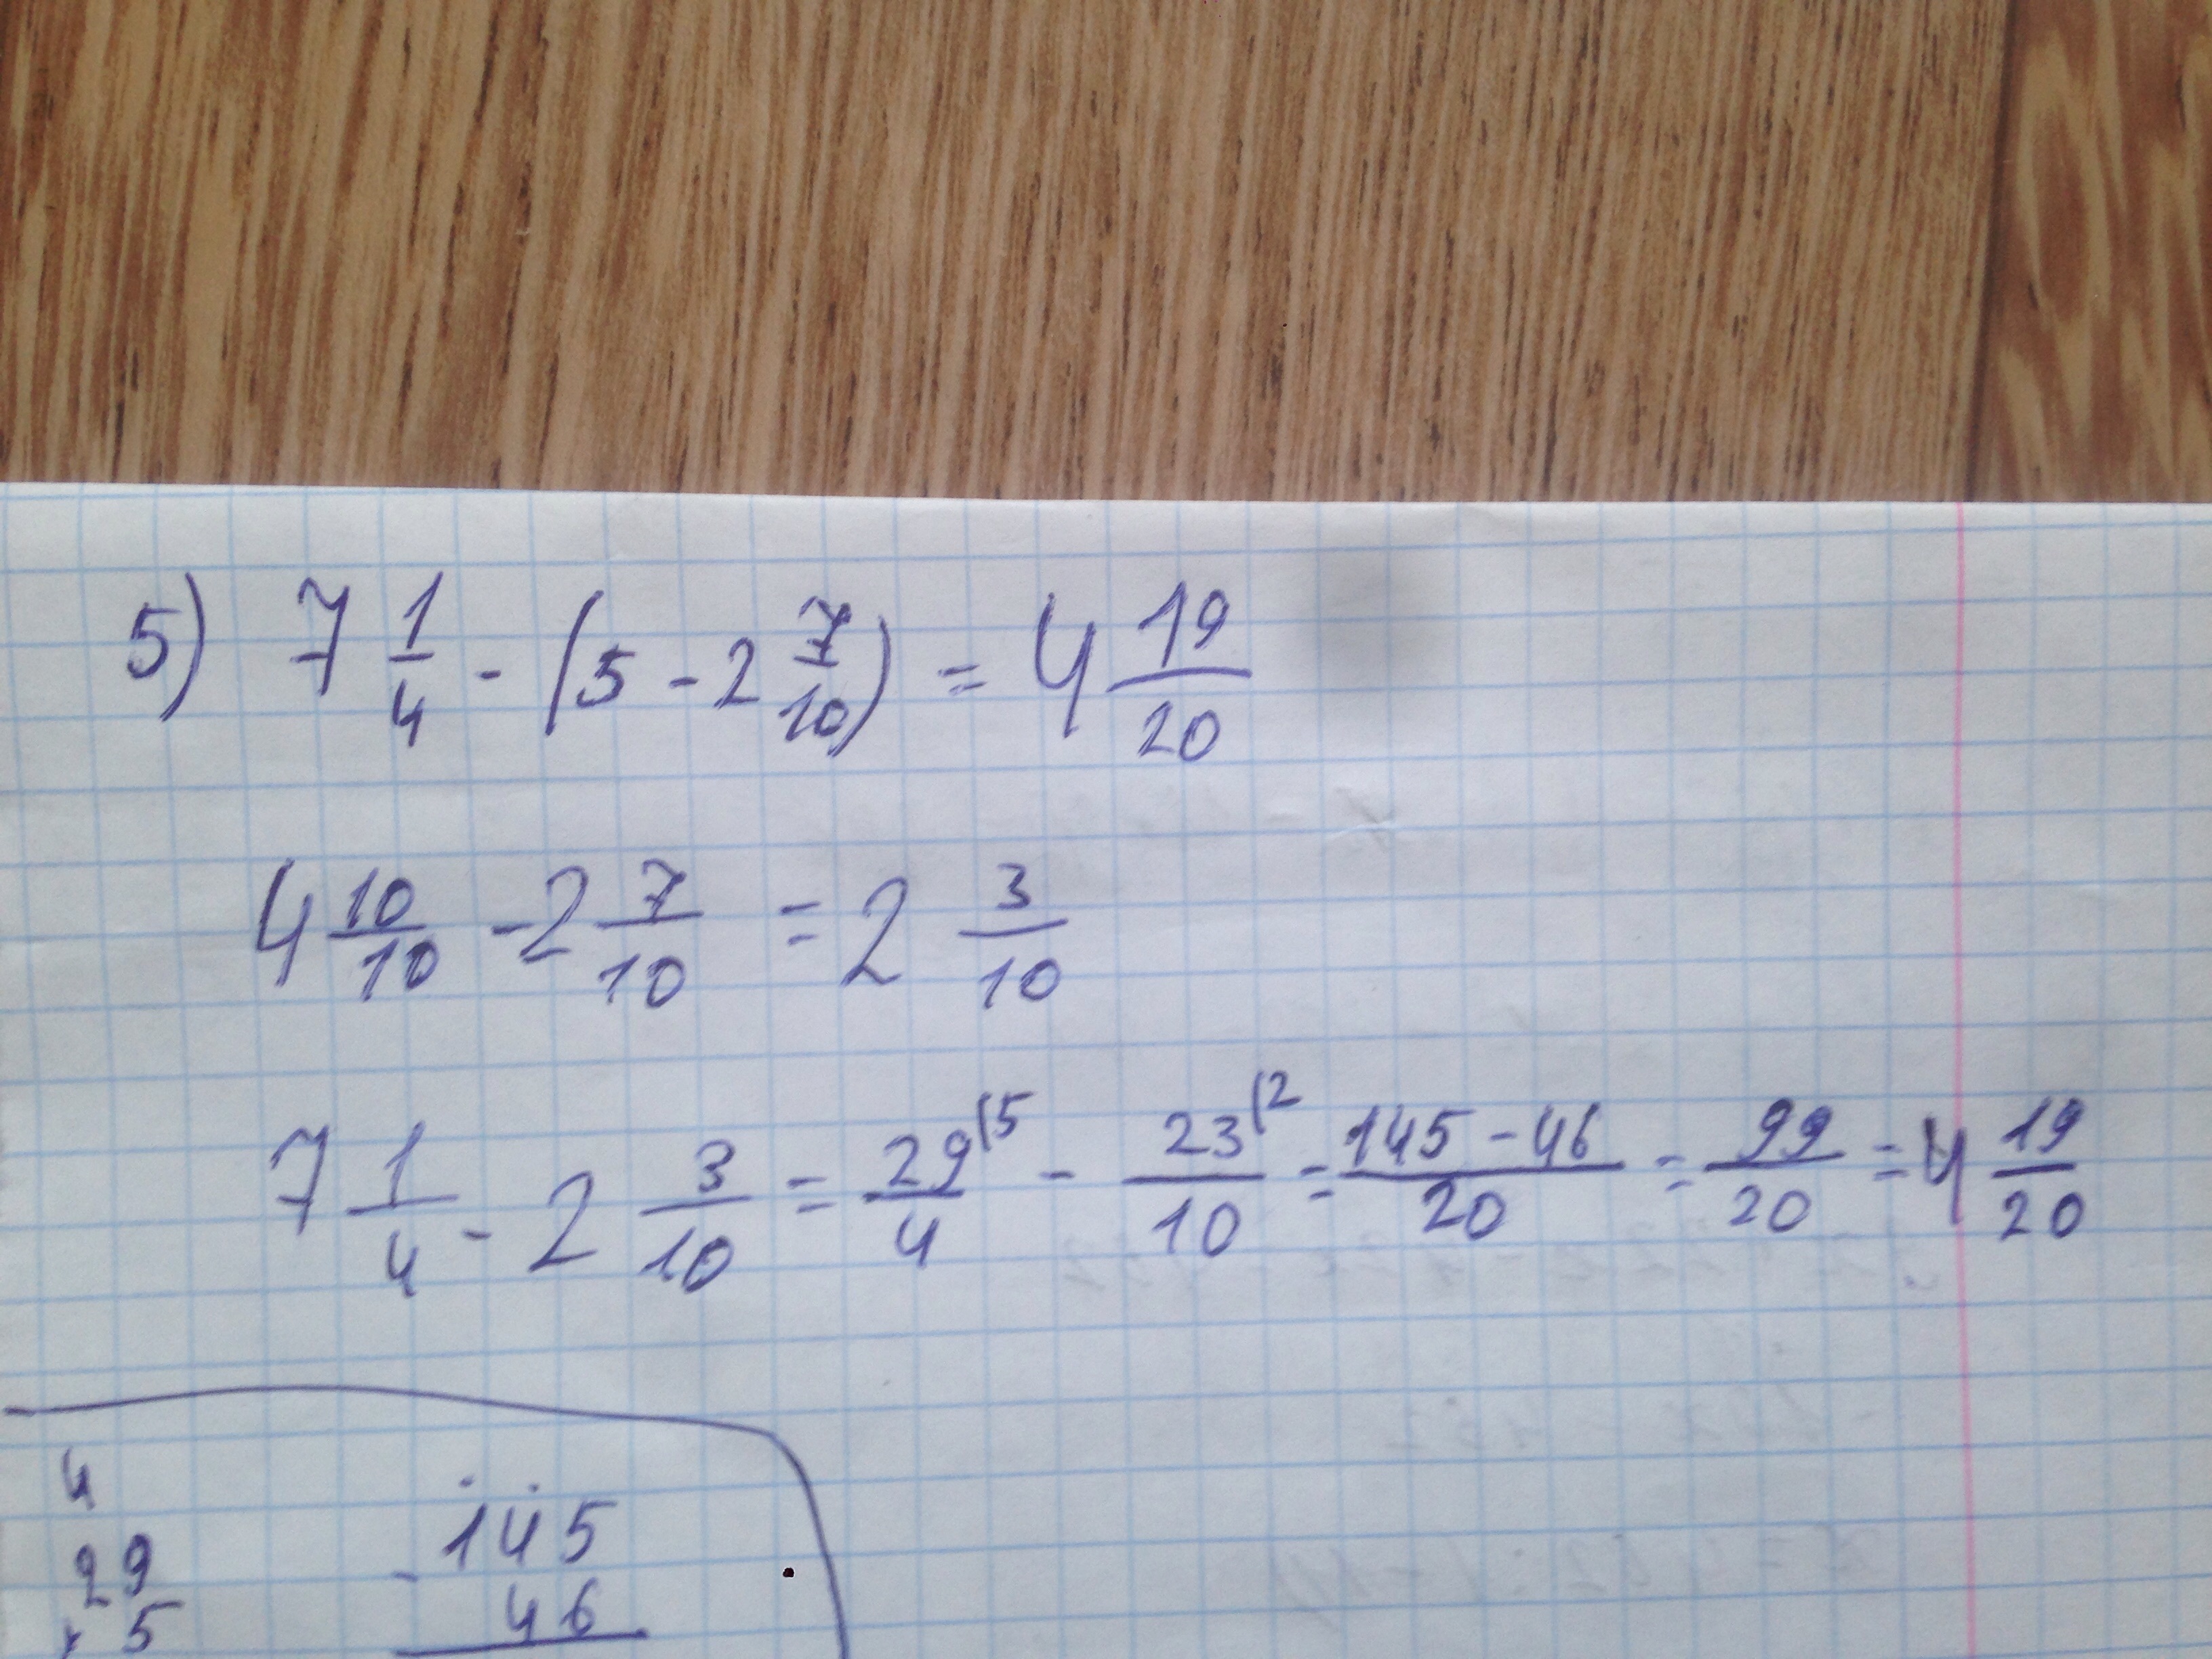 5) 7 1/4 - (5 - 2 7/10) = 4 19/20
4 10/10 - 2 7/10 = 2 3/10
7 1/4 - 2 3/10 = 29/4 (5 - 23/10 (2 = 145 - 46/20 = 99/20 = 4 19/20
4
29
× 5
- 145
46